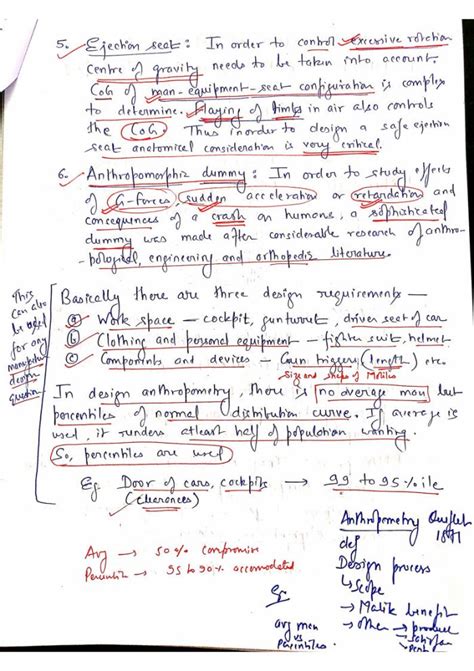 5. Ejection seat: In order to control excessive rotation
centre of gravity needs to be taken into account.
CoG of man-equipment-seat configuration is complex
to determine. Flaying of limbs in air also controls
the CoG. Thus inorder to design a safe ejection
seat anatomical consideration is very critical.
6. Anthropomorphic dummy: In order to study effects
of G-forces, sudden acceleration or retardation and
consequences of a crash on humans, a sophisticated
dummy was made after considerable research of anthro-
-pological, engineering and orthopedic literature.
This
can also
be used
for any
death
question
Basically there are three design requirements —
a) Work space — cockpit, gun turret, driver seat of car
b) Clothing and personal equipment — fighter suit, helmet
c) Components and devices — Gun trigger (length) etc.
Size and shape of
In design anthropometry, there is no average man but
percentiles of normal distribution curve. If average is
used, it renders atleast half of population wanting.
So, percentiles are used
Eg. Door of cars, cockpits → 99 to 95 %ile
(clearances)
Avg → 50% compromise
→ 95 to 90% accomodated
Anthropometry
1871
def
Design process
↳ Scope
→ benefit
→ other → product
Eg
avg man
vs
Percentiles